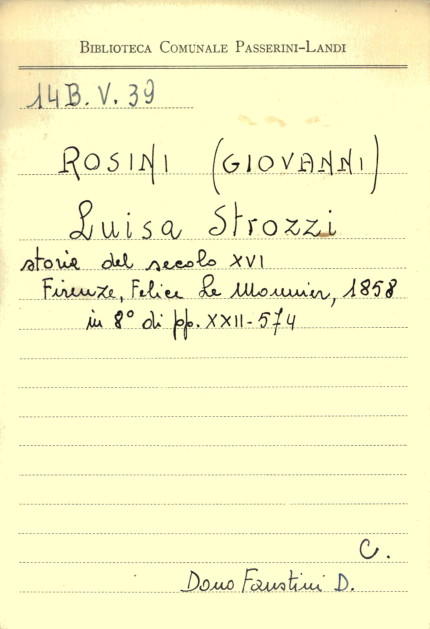 BIBLIOTECA COMUNALE PASSERINI-LANDI
14B. V. 39
ROSINI (GIOVANNI)
Luisa Strozzi
storia del secolo XVI
Firenze, Felice Le Monnier, 1858
in 8° di pp. XXII-574
C.
Dono Faustini D.